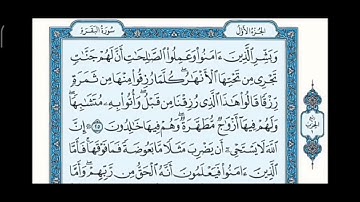 الجزء الأول
سورة البقرة
وَبَشِّرِ ٱلَّذِينَ ءَامَنُوا۟ وَعَمِلُوا۟ ٱلصَّٰلِحَٰتِ أَنَّ لَهُمْ جَنَّٰتٍ
تَجْرِى مِن تَحْتِهَا ٱلْأَنْهَٰرُ ۖ كُلَّمَا رُزِقُوا۟ مِنْهَا مِن ثَمَرَةٍ
رِّزْقًا ۙ قَالُوا۟ هَٰذَا ٱلَّذِى رُزِقْنَا مِن قَبْلُ ۖ وَأُتُوا۟ بِهِۦ مُتَشَٰبِهًا ۖ
وَلَهُمْ فِيهَآ أَزْوَٰجٌ مُّطَهَّرَةٌ ۖ وَهُمْ فِيهَا خَٰلِدُونَ ٢٥ ۞ إِنَّ
ٱللَّهَ لَا يَسْتَحْىِۦٓ أَن يَضْرِبَ مَثَلًا مَّا بَعُوضَةً فَمَا فَوْقَهَا ۚ فَأَمَّا
ٱلَّذِينَ ءَامَنُوا۟ فَيَعْلَمُونَ أَنَّهُ ٱلْحَقُّ مِن رَّبِّهِمْ ۖ وَأَمَّا